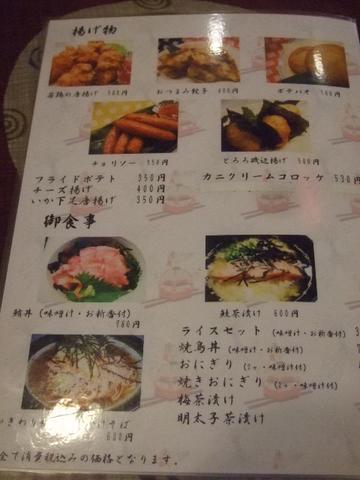 揚げ物
若鶏の唐揚げ
おつまみ餃子
ポテパオ
チョリソー
とろろ磯辺揚げ
フライドポテト 350円
チーズ揚げ 400円
いか下足唐揚げ 350円
カニクリームコロッケ 530円
御食事
鮪丼（味噌汁・お新香付）
980円
鮭茶漬け 600円
ライスセット（味噌汁・お新香付）
焼鳥丼（味噌汁・お新香付）
おにぎり（2ヶ・味噌汁付）
焼きおにぎり（2ヶ・味噌汁付）
梅茶漬け
明太子茶漬け
600円
全て消費税込みの価格となります。